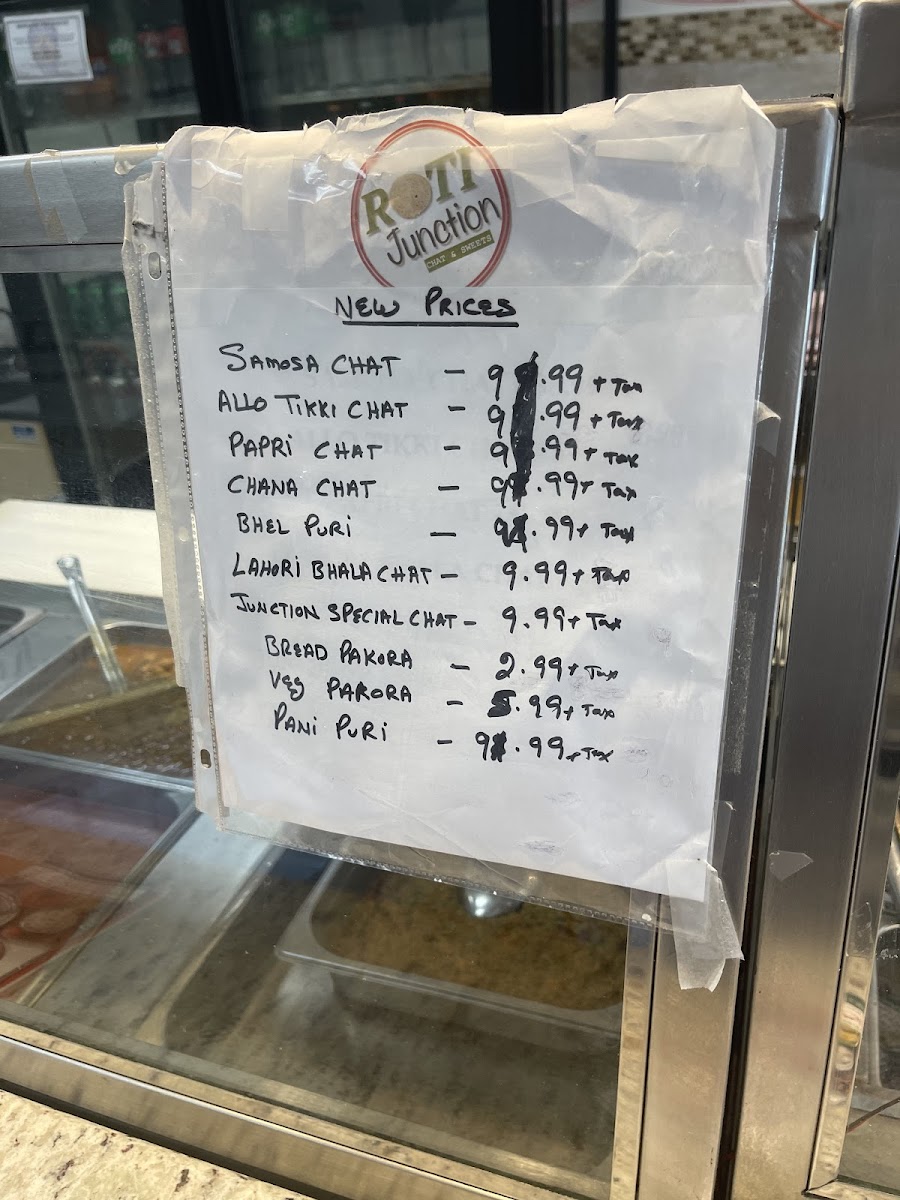 ROTI
Junction
CHAT & SWEETS
NEW PRICES
SAMOSA CHAT - 9.99 + Tax
ALLO TIKKI CHAT - 9.99 + Tax
PAPRI CHAT - 9.99 + Tax
CHANA CHAT - 9.99 + Tax
BHEL PURI - 9.99 + Tax
LAHORI BHALA CHAT - 9.99 + Tax
JUNCTION SPECIAL CHAT - 9.99 + Tax
BREAD PAKORA - 2.99 + Tax
Veg PAKORA - 5.99 + Tax
PANI PURI - 9.99 + Tax